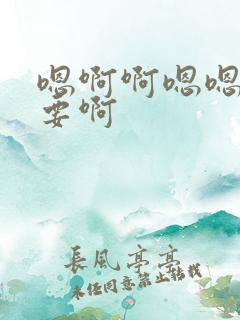 嗯啊啊嗯嗯
要啊
長風亭亭
未经同意禁止转载